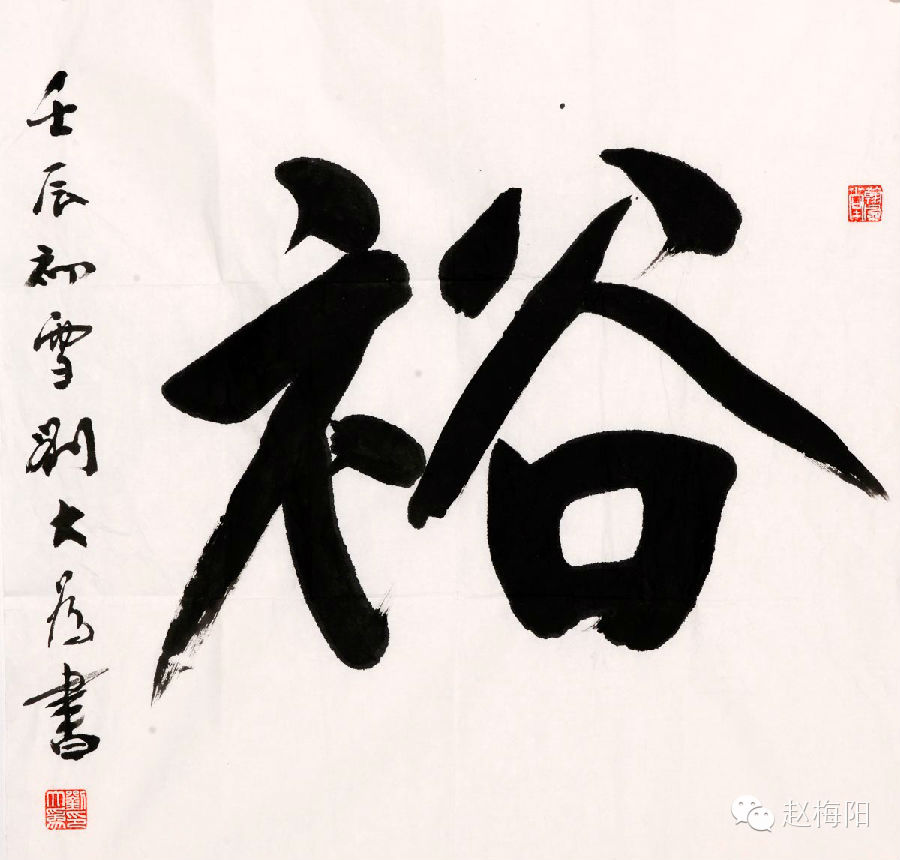 裕
壬辰初雪劉大為書
赵梅阳